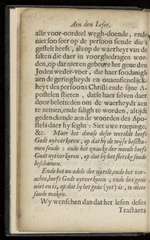 Aen den Leser.
alle voor-oordeel wegh-doende, ende
niet soo seer op de persoon siende die 't
gestelt heeft, als op de waerheyt van de
saken die daer in voorghedragen wor-
den, op dat niet en gebeure het gene den
Joden weder-voer, die haer soodanigh
aen de geringheydt en onaensienlijck-
heyt des persoons Christi ende sijne A-
postelen stieten, datse haer selven daer
door beletteden om de waerheydt aen
te nemen, ende saligh te worden, altijdt
gedenckende aen de woorden des Apo-
stels daer hy seght: Siet uwe roepinge,
&c. Maer het dwase deser werelt heeft
Godt uytverkoren, op dat hy de wijse beschā-
men soude; ende het swacke der werelt heeft
Godt uytverkoren, op dat hy het stercke soude
beschamen.
Ende het on-edele der werelt, ende het ver-
achte, heeft Godt uytverkoren, ende het gene
niet en is, op dat hy het gene (yet) is, te niete
soude maken.
Wy wenschen dan dat het lesen deses
Tractaets